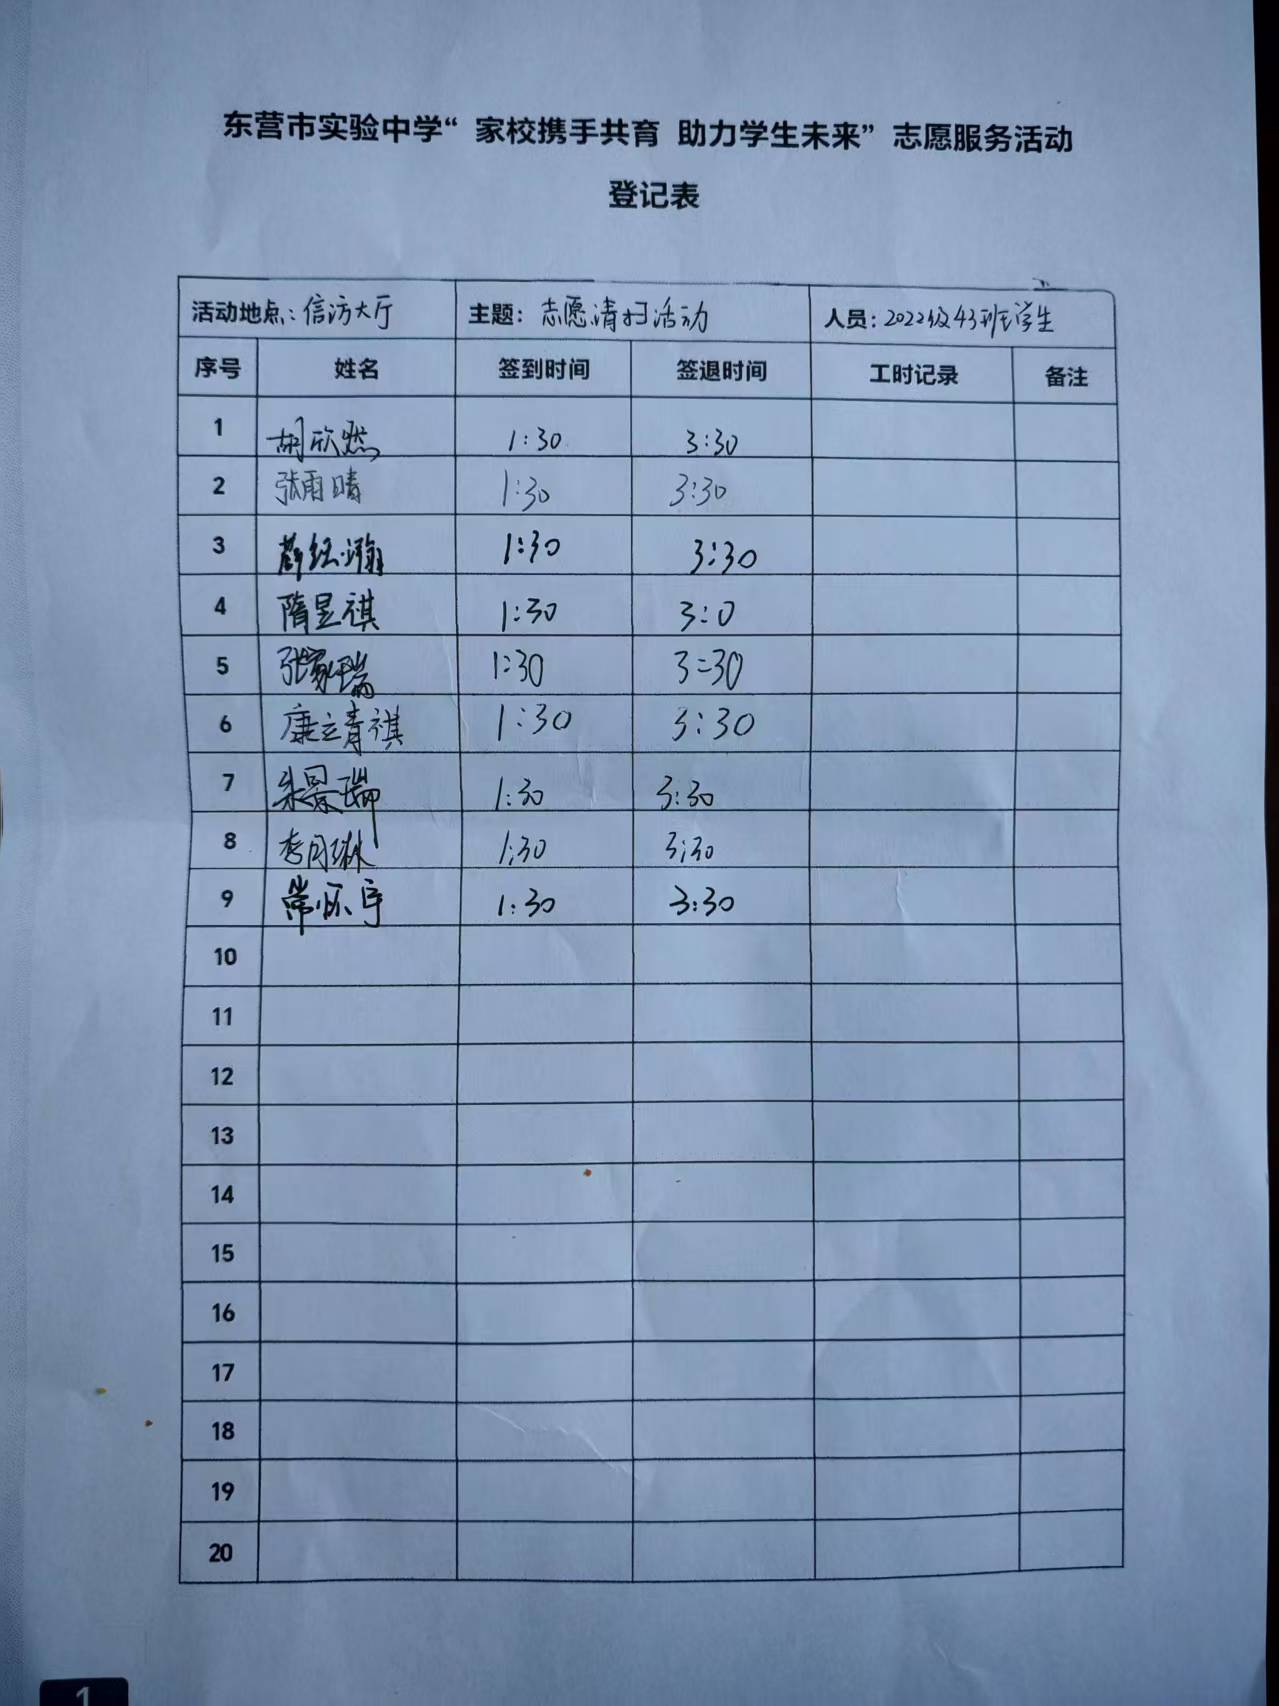 东营市实验中学“ 家校携手共育 助力学生未来” 志愿服务活动
登记表
活动地点：信访大厅 主题：志愿清扫活动 人员：2022级43班学生
序号 姓名 签到时间 签退时间 工时记录 备注
1 胡欣燃 1:30 3:30
2 张雨晴 1:30 3:30
3 薛经瀚 1:30 3:30
4 隋昱祺 1:30 3:0
5 张家瑞 1:30 3:30
6 康立青祺 1:30 3:30
7 朱景瑞 1:30 3:30
8 李月琳 1:30 3:30
9 常怀宇 1:30 3:30
10
11
12
13
14
15
16
17
18
19
20
1